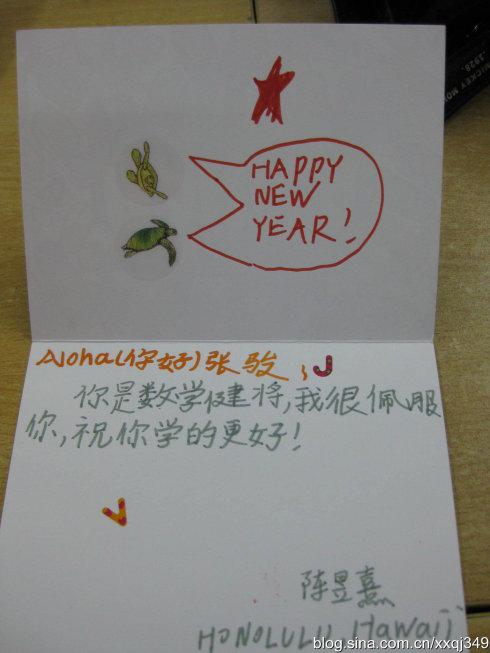 HAPPY
NEW
YEAR!
Aloha(你好)张骏, J
你是数学健将,我很佩服
你,祝你学的更好!
V
陈昱熹
HONOLULU, Hawaii
blog.sina.com.cn/xxqj349